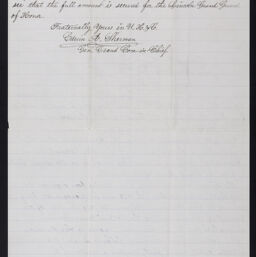 see that the full amount is secured for the Lincoln Grand Guard
of Honor.
Fraternally Yours in
Edwin A. Sherman
Com in Chief